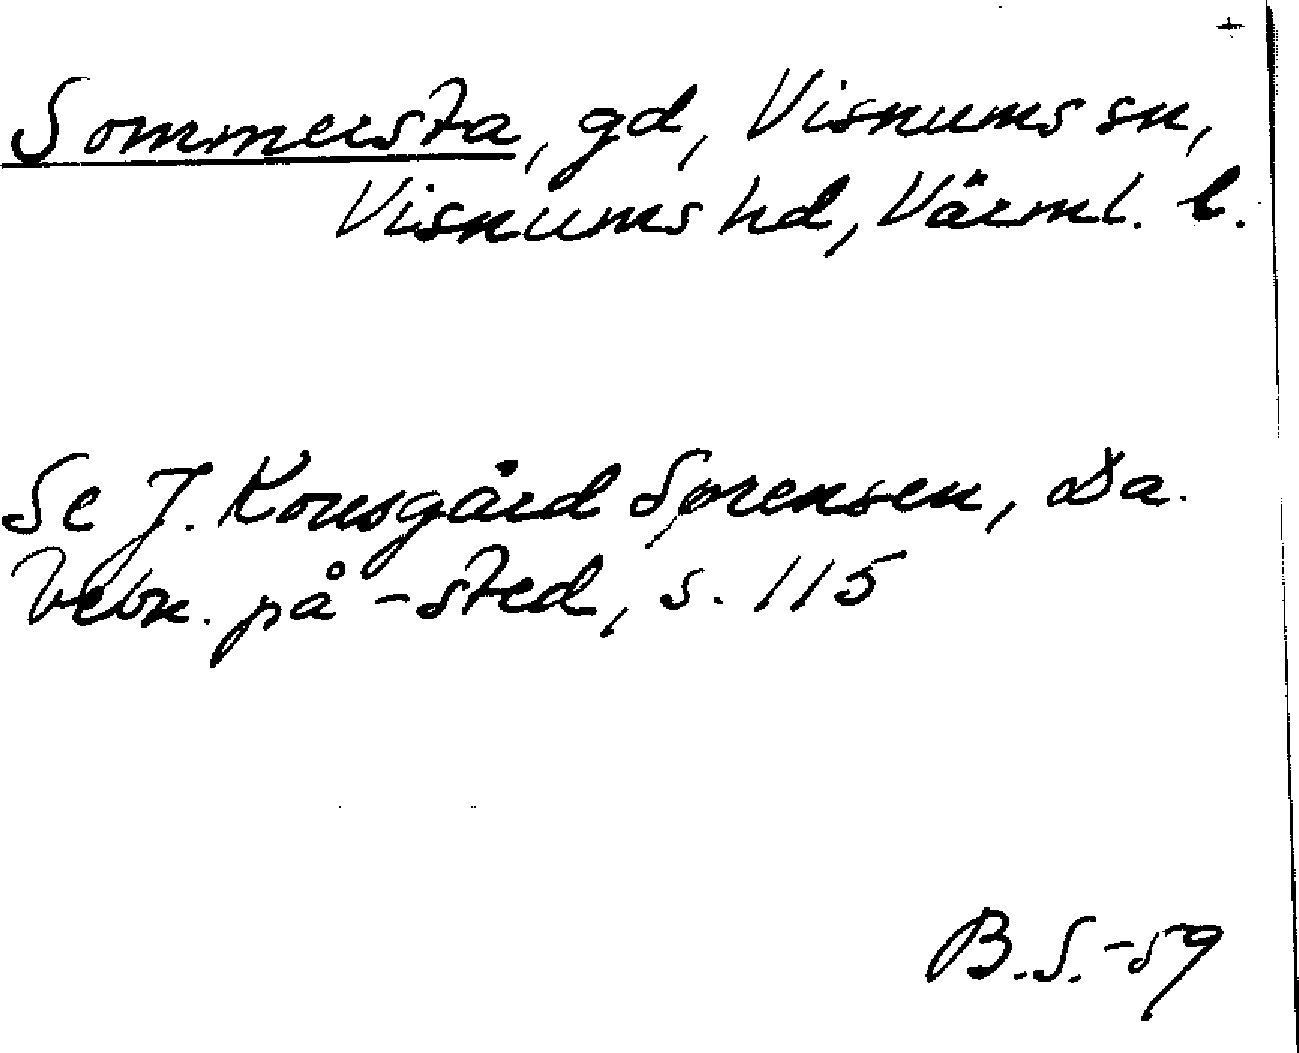 Sommersta, gd, Visnums sn,
Visnums hd, Värml. l.
Se J. Kousgård Sørensen, Da.
Vebn. på -sted, s. 115
B.S.-59